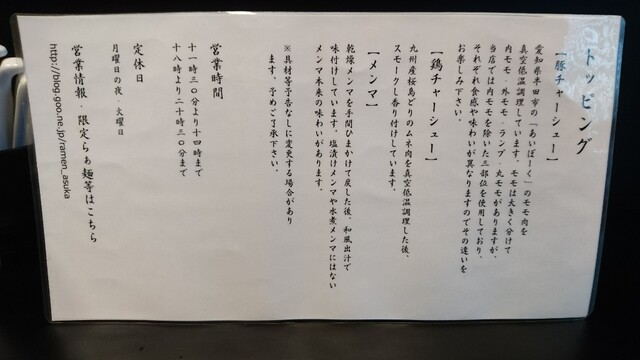 トッピング
【豚チャーシュー】
愛知県半田市の「あいぽーく」のモモ肉を
真空低温調理しています。モモは大きく分けて
内モモ・外モモ・ランプ・丸モモがありますが、
当店では内モモを除いた三部位を使用しており、
それぞれ食感や味わいが異なりますのでその違いを
お楽しみ下さい。
【鶏チャーシュー】
九州産桜島どりのムネ肉を真空低温調理した後、
スモークし香り付けしています。
【メンマ】
乾燥メンマを手間ひまかけて戻した後、和風出汁で
味付けしています。塩漬けメンマや水煮メンマにはない
メンマ本来の味わいがあります。
※具材等予告なしに変更する場合があり
ます。予めご了承下さい。
営業時間
十一時三〇分より十四時まで
十八時より二十時三〇分まで
定休日
月曜日の夜・火曜日
営業情報・限定らぁ麺等はこちら
http://blog.goo.ne.jp/ramen_asuka